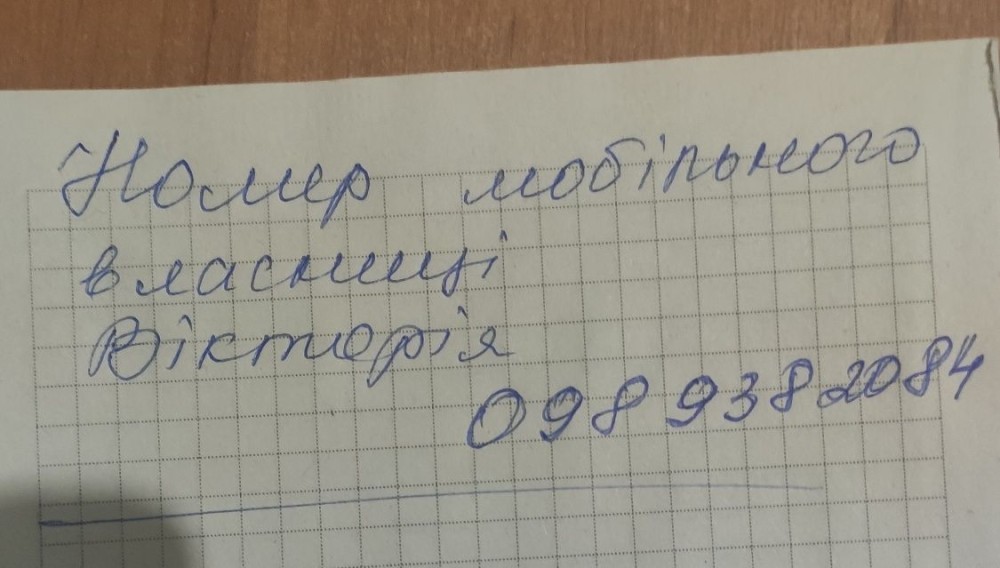 Номер мобільного
власниці
Вікторія
098 9382084